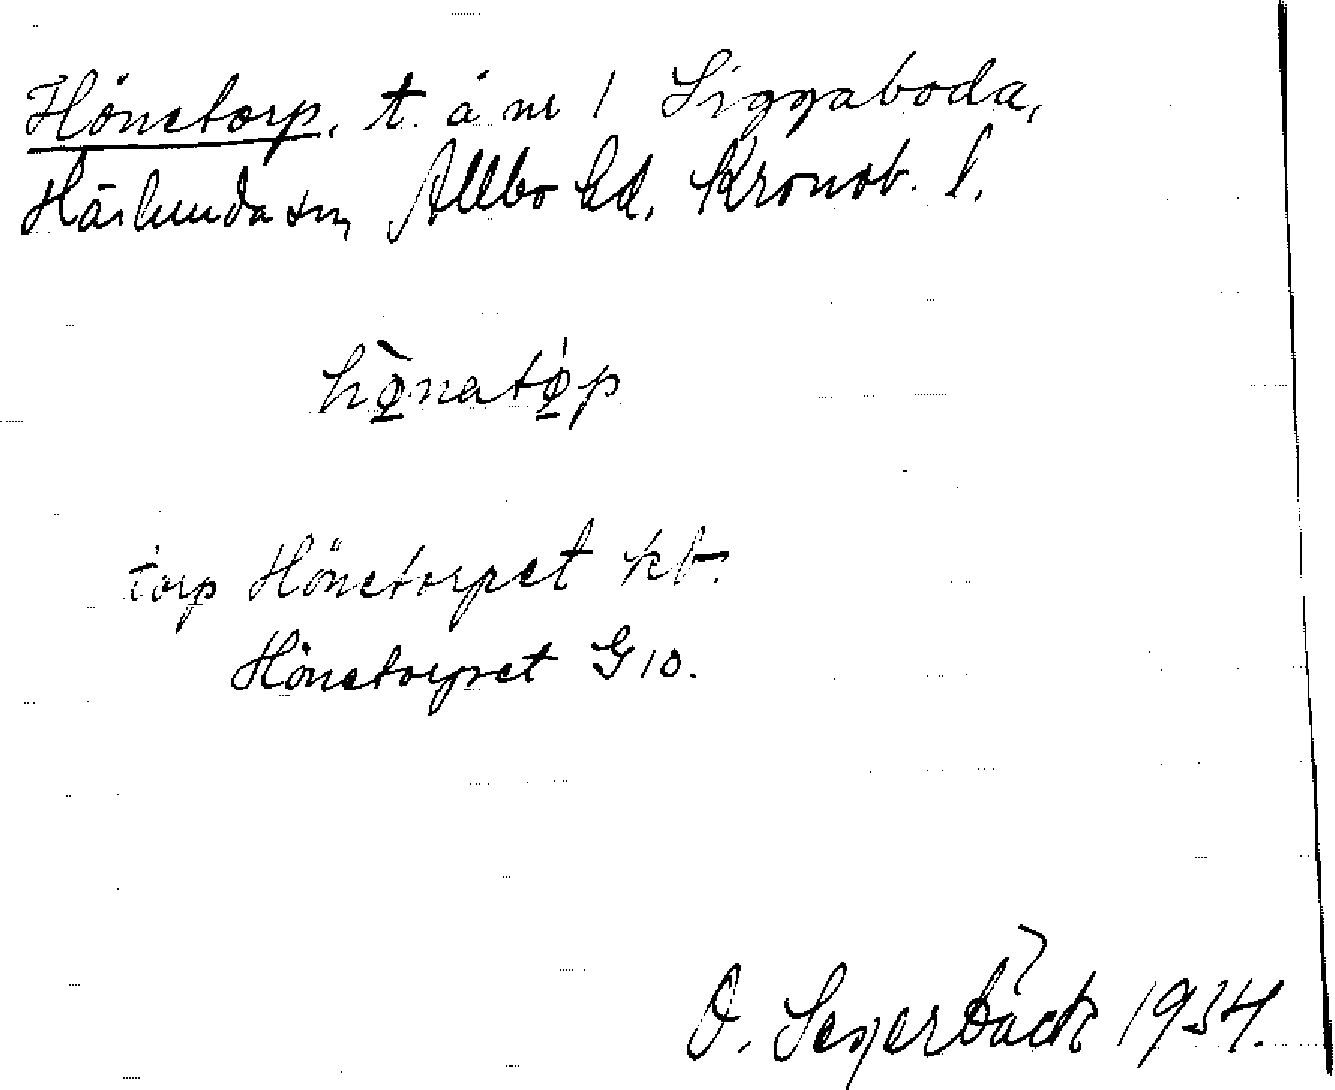 Hönetorp, t. å nr 1 Siggaboda,
Härlunda sn, Allbo hd, Kronob. l.
hø̱̀natǿ̱p
torp Hönetorpet kt.
Hönetorpet G10.
O. Segerbäck 1934.